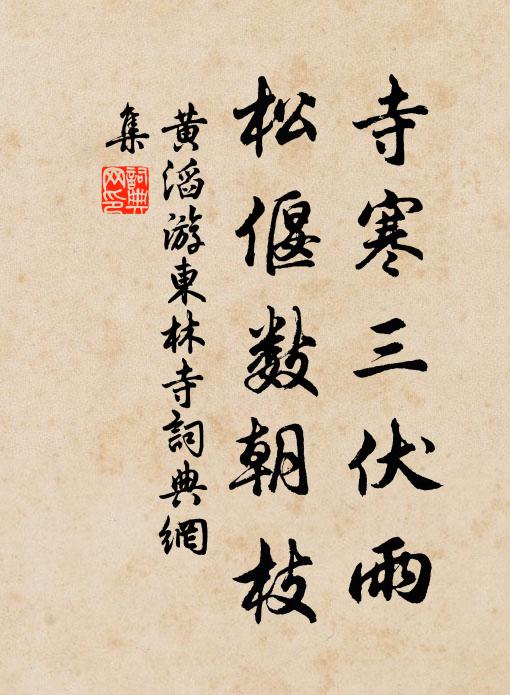 寺寒三伏雨
松偃數朝枝
黄滔游東林寺詞典網
集
詞典
网印